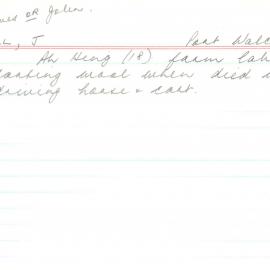 OR John.
L, J Port Walc
Ah Heng (18) farm lab
carting wool when died
driving horse & cart.